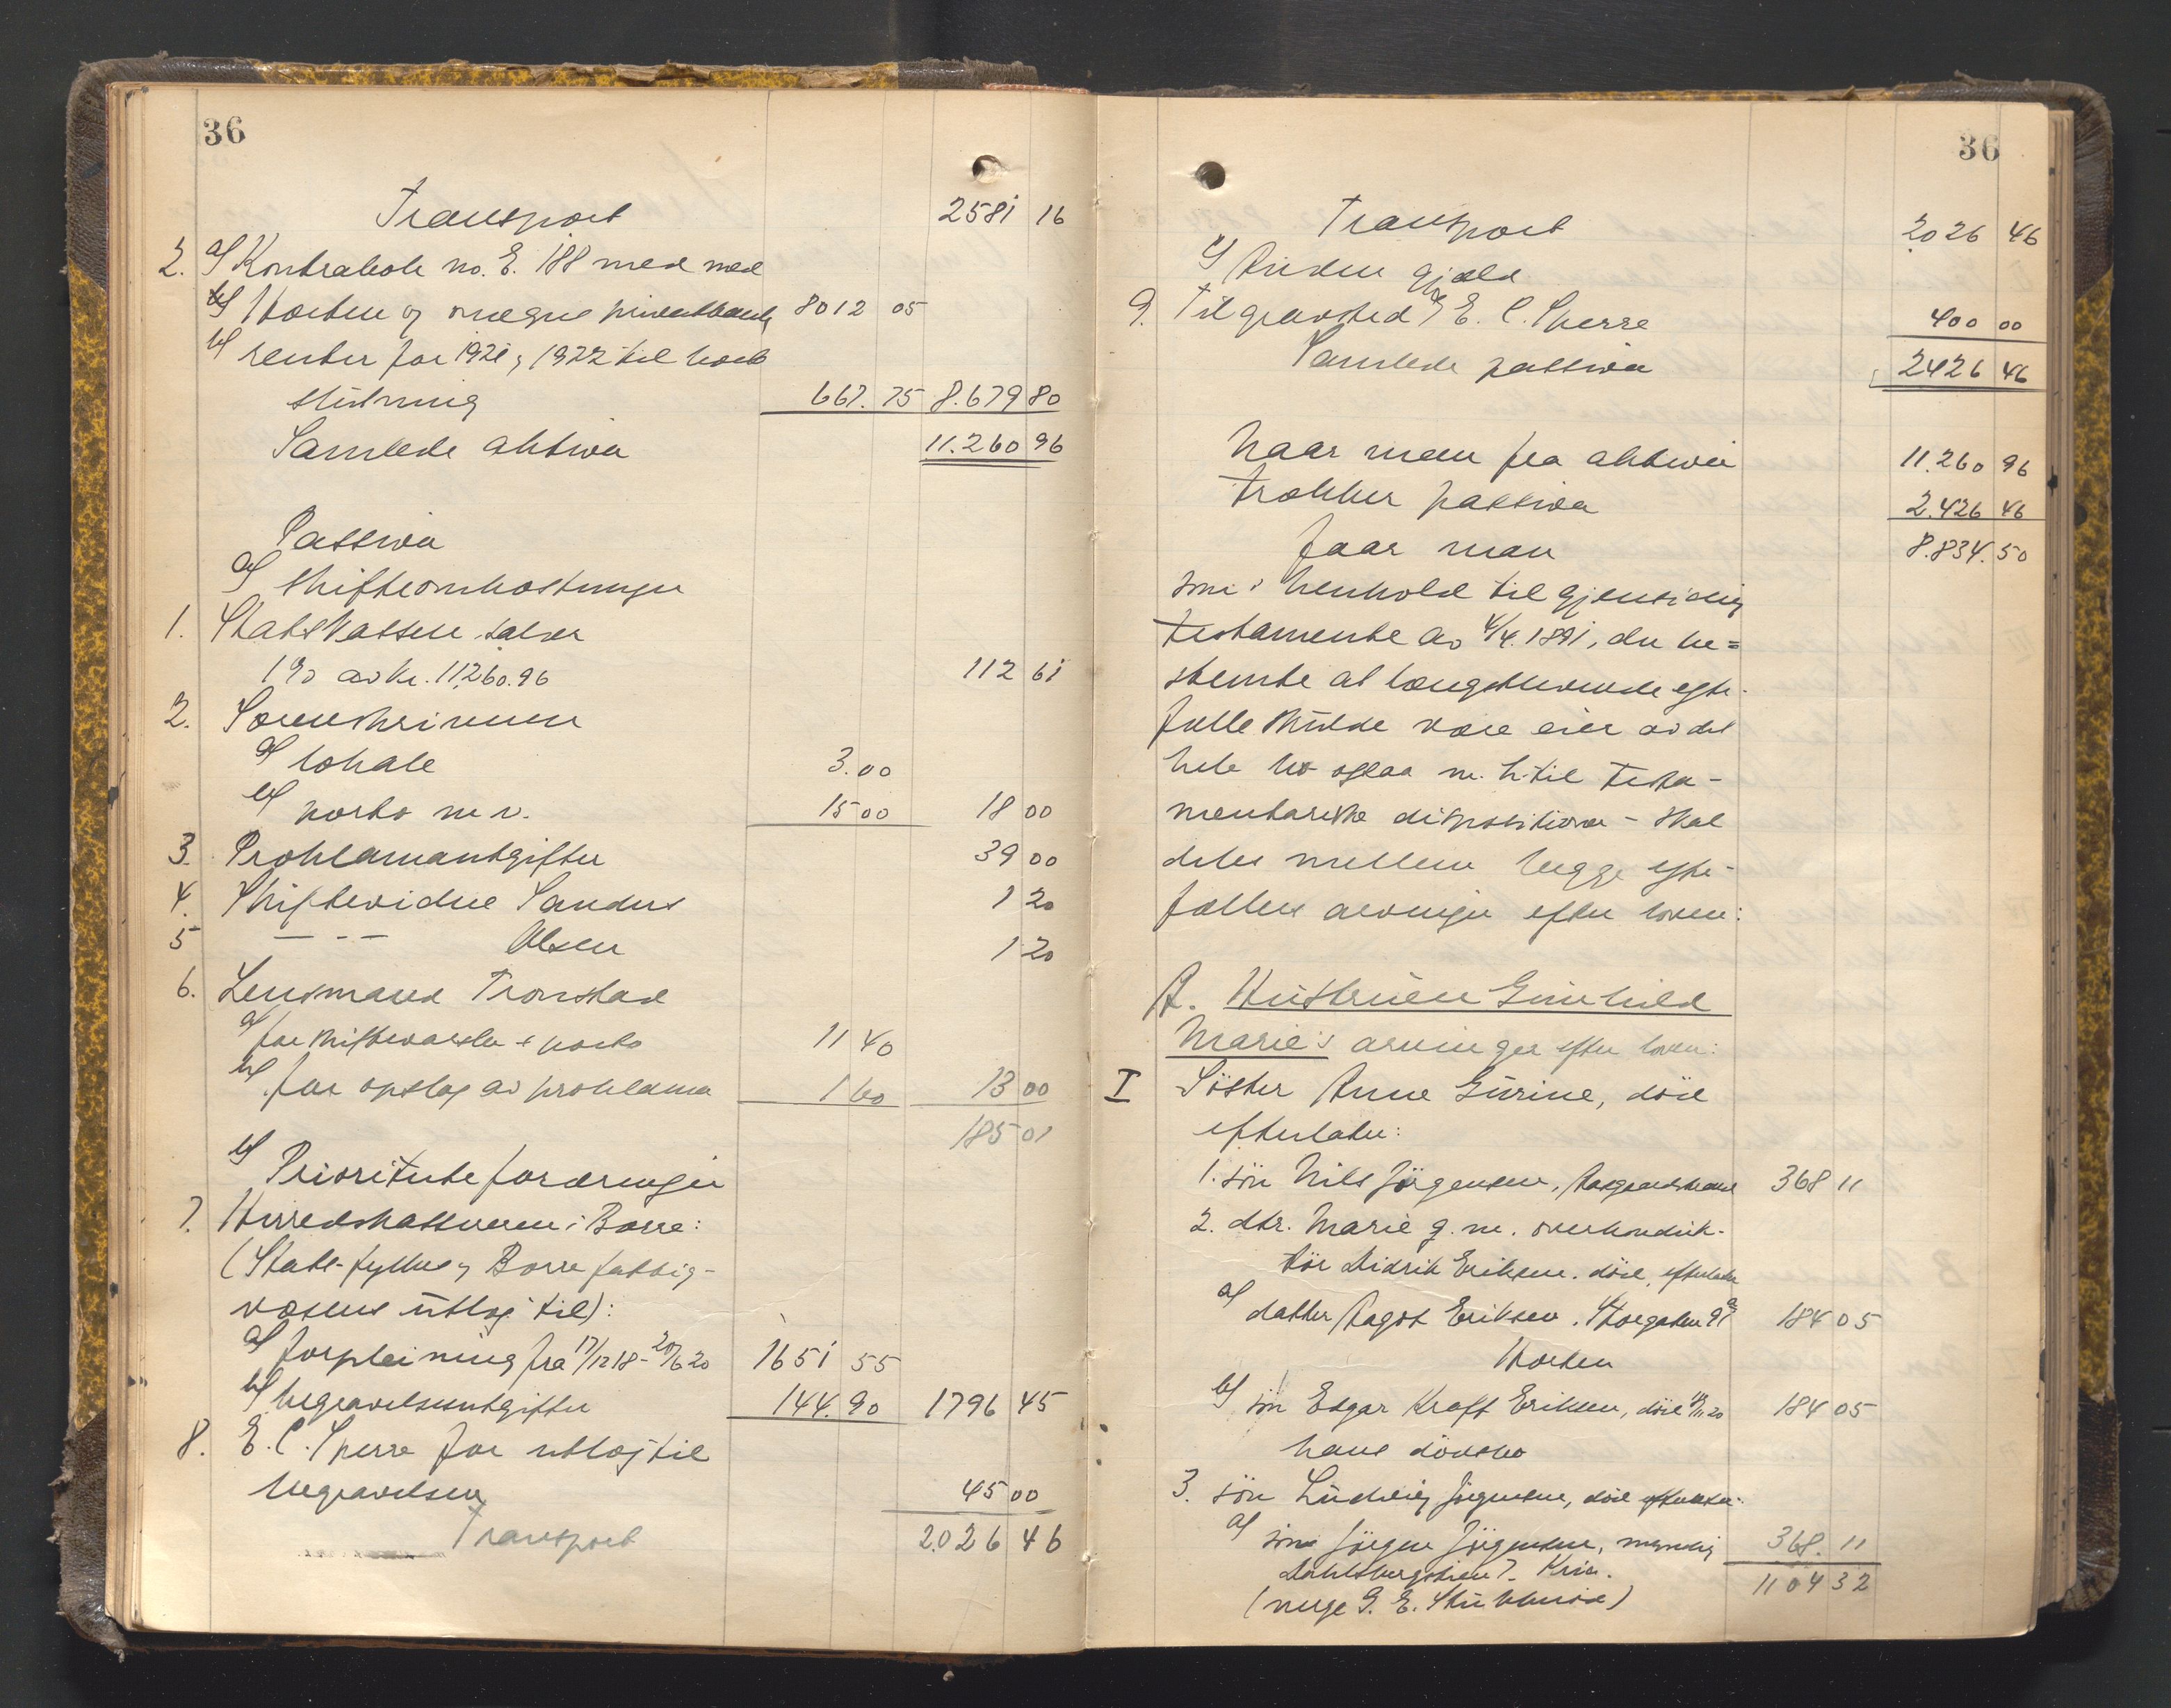 36
Transport 2581 16
2. a) Kontrabok no. E. 188 med med
b) Horten og omegns privatbank 8012 05
b) renter for 1921 og 1922 til bok
slutning 667.75 8.679 80
Samlede aktiva 11.260 96
Passiva
a) Skifteomkostninger
1. Statskassen sal
1% av kr. 11260.96 112 61
2. Sorenskriveren
a) lokale 3.00
b) porto m v. 15 00 18 00
3. Proklamautgifter 39 00
4. Skiftevidne Sanders 1 20
5 — - — Olsen 1 20
6. Lensmand Tronstad
a) for skiftevarsler + porto 11 40
b) for opslag av proklama 1 60 13 00
185 01
b) Prioriterte fordringer
7. Herredskassereren i Borre:
(Stats- fylkes og Borre fattig-
væsens utlæg til):
a) forpleining fra 17/12 18 - 20/6 20 1651 55
b) begravelsesutgifter 144.90 1796 45
8. E. C. Sperre for utlæg til
begravelsen 45 00
Transport 2026 46
36
Transport 2026 46
c) Anden gjæld
9. Til gravsted E. C. Sperre 400 00
Samlede passiva 2426 46
Naar man fra aktiva 11.260 96
trækker passiva 2.426 46
faar man 8.834.50
som i henhold til gjensidig
testamente av 4/4. 1891, der be=
stemte at længstlevende egte-
fælle skulde være eier av det
hele bo ogsaa m. h. til testa-
mentariske dispositioner - skal
deles mellem begge egte-
fællers arvinger efter loven:
A. Hustruen Gunhild
Marie's arvinger efter loven:
I Söster Anne Gurine, död
efterlater:
1. sön Nils Jörgensen, Aasgaardstrand 368 11
2. dtr. Marie g. m. overkonduk-
tör Didrik Eriksen. död, efterlater
a) datter Aagot Eriksen. Storgaten 9 184 05
Horten
b) sön Edgar Kraft Eriksen, död 20 184 05
hans dödsbo
3. sön Ludvig Jörgensen, död efterlater:
a) sön Jörgen Jörgensen, myndig 368. 11
Dahlsbergstien 7. Kria. 1104 32
(verge G. E. )